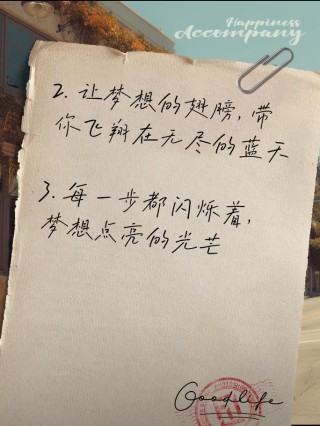 Happiness
Accompany
2. 让梦想的翅膀，带
你飞翔在无尽的蓝天
3. 每一步都闪烁着，
梦想点亮的光芒
Goodlife